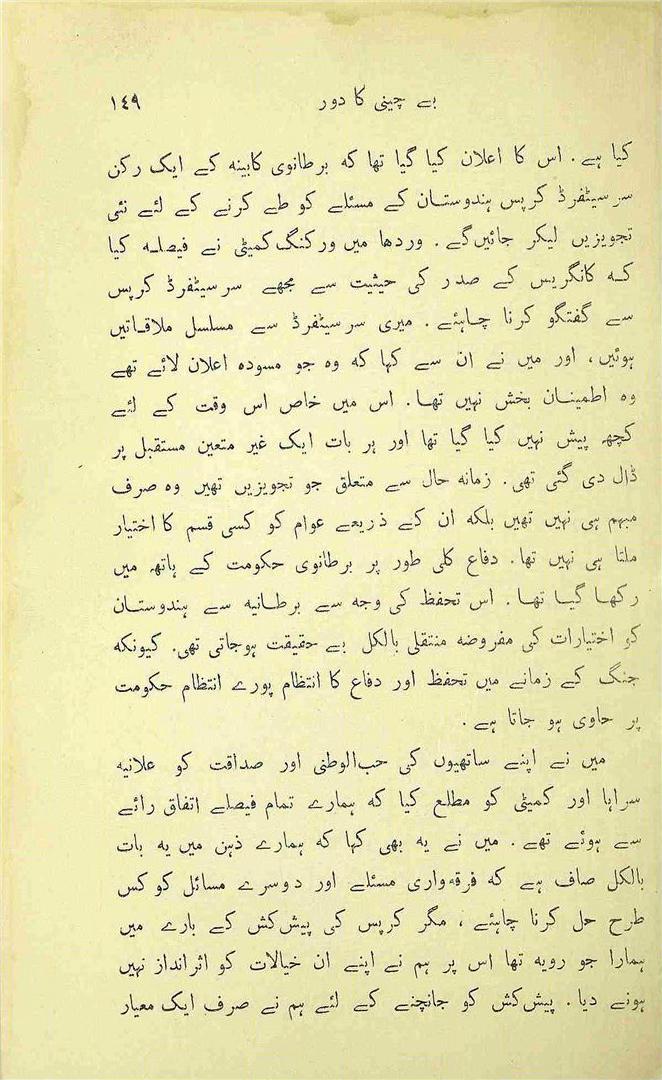 بے چینی کا دور ۱٤۹
کیا ہے . اس کا اعلان کیا گیا تھا کہ برطانوی کابینہ کے ایک رکن
سر سیٹفرڈ کرپس ہندوستان کے مسئلے کو طے کرنے کے لئے نئی
تجویزیں لیکر جائیں گے . وردھا میں ورکنگ کمیٹی نے فیصلہ کیا
کہ کانگریس کے صدر کی حیثیت سے مجھے سر سیٹفرڈ کرپس
سے گفتگو کرنا چاہئے . میری سر سیٹفرڈ سے مسلسل ملاقاتیں
ہوئیں، اور میں نے ان سے کہا کہ وہ جو مسودہ اعلان لائے تھے
وہ اطمینان بخش نہیں تھا . اس میں خاص اس وقت کے لئے
کچھ پیش نہیں کیا گیا تھا اور ہر بات ایک غیر متعین مستقبل پر
ڈال دی گئی تھی . زمانہ حال سے متعلق جو تجویزیں تھیں وہ صرف
مبہم ہی نہیں تھیں بلکہ ان کے ذریعے عوام کو کسی قسم کا اختیار
ملتا ہی نہیں تھا . دفاع کلی طور پر برطانوی حکومت کے ہاتھ میں
رکھا گیا تھا . اس تحفظ کی وجہ سے برطانیہ سے ہندوستان
کو اختیارات کی مفروضہ منتقلی بالکل بے حقیقت ہوجاتی تھی . کیونکہ
جنگ کے زمانے میں تحفظ اور دفاع کا انتظام پورے انتظام حکومت
پر حاوی ہو جاتا ہے .
میں نے اپنے ساتھیوں کی حب الوطنی اور صداقت کو علانیہ
سراہا اور کمیٹی کو مطلع کیا کہ ہمارے تمام فیصلے اتفاق رائے
سے ہوئے تھے . میں نے یہ بھی کہا کہ ہمارے ذہن میں یہ بات
بالکل صاف ہے کہ فرقہ واری مسئلے اور دوسرے مسائل کو کس
طرح حل کرنا چاہئے ، مگر کرپس کی پیش کش کے بارے میں
ہمارا جو رویہ تھا اس پر ہم نے اپنے ان خیالات کو اثر انداز نہیں
ہونے دیا . پیش کش کو جانچنے کے لئے ہم نے صرف ایک معیار